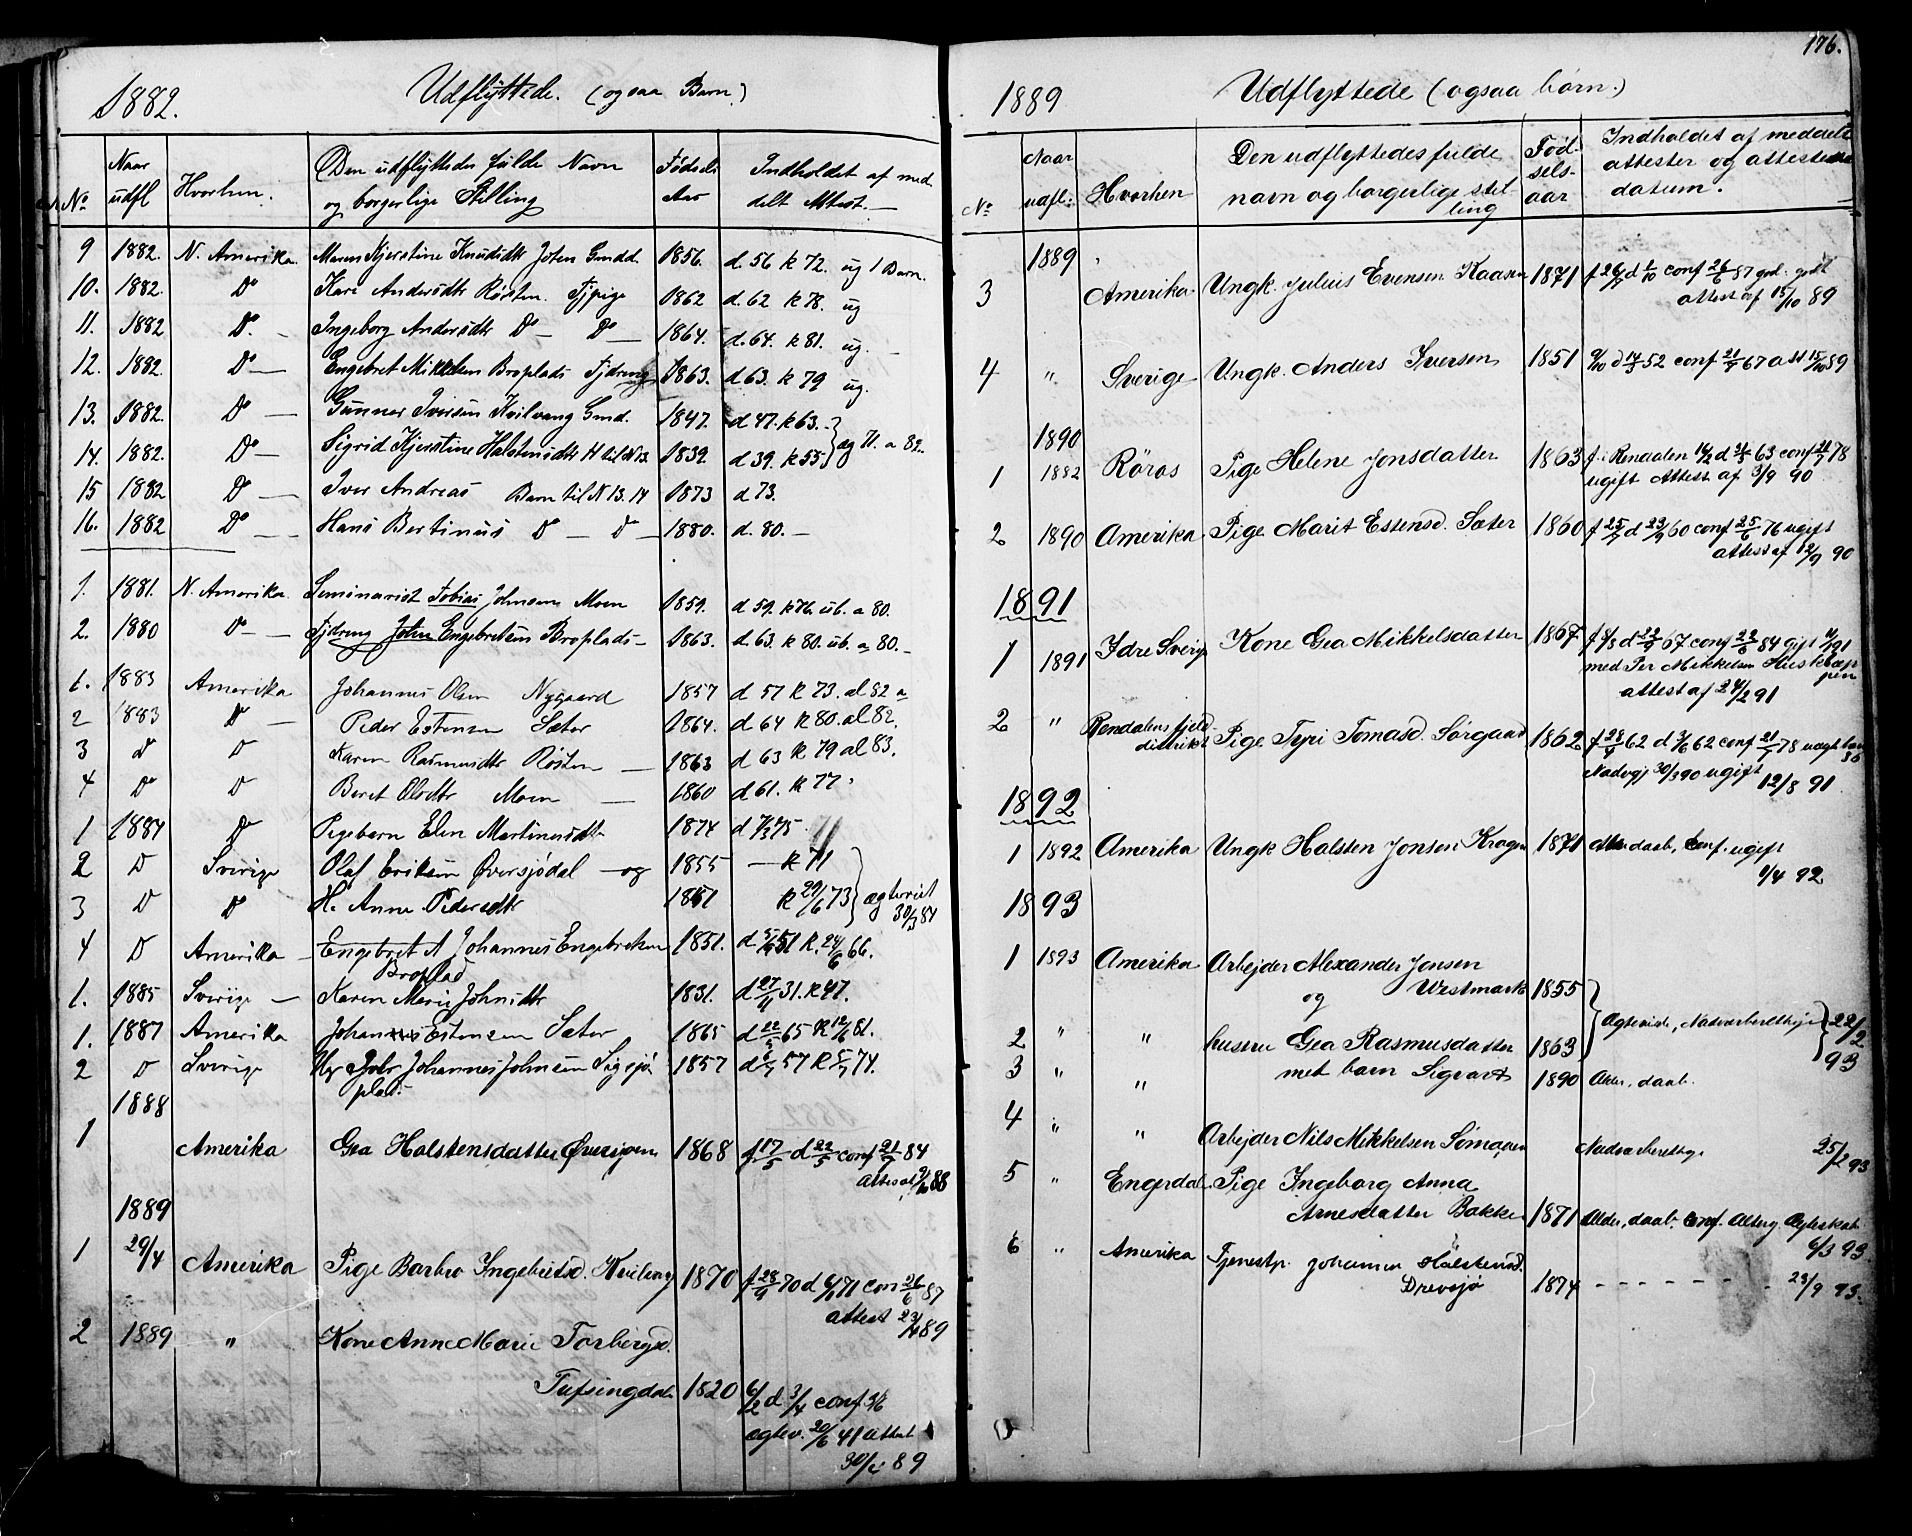 1882.
Udflyttede. (ogsaa Børn.)
No
Naar udfl
Hvorhen.
Den udflyttedes fulde Navn og borgerlige Stilling
Fødsels Aar
Indholdet af meddelt Attest.
9 1882. N. Amerika. Maren Kjerstine Knudsdtr Joten Gmdd. 1856. d. 56 k 72. ug 1 Barn.
10. 1882. Do Kari Andersdtr Røsten. Tjpige 1862 d. 62 k 78. ug
11. 1882 Do. — Ingeborg Andersdtr Do — Do — 1864. d. 64. k 81. ug. —
12. 1882. Do — Engebret Mikkelsen Broplads Tjdreng 1863. d 63. k 79 ug.
13. 1882. Do — Gunner Iversen Kvilvang Gmd. 1847. d 47. k 63. } æg 71. a 82.
14. 1882. Do — Sigrid Kjerstine Halstensdtr H til N 13. 1839. d 39. k 55.
15 1882 Do — Iver Andreas Barn til N 13. 14 1873 d 73.
16. 1882 Do — Hans Bertinus Do — Do — 1880. d. 80. —
1. 1881. N. Amerika. Seminarist Tobias Johnsen Moen 1859. d 59. k 76. ub. a 80.
2. 1880 Do — Tjdreng John Engebretsen Broplads — 1863. d 63. k 80. ub. a 80. —
1. 1883 Amerika Johannes Olsen Nygaard 1857 d 57 k 73. al 82 a
2 1883 Do — Peder Estensen Sæter 1864. d 64 k 80. al 82.
3 Do Do Karen Rasmusdtr Røsten — 1863 d 63 k 79 al 83.
4 Do Do Beret Olsdtr Moen — 1860 d 61. k 77
1 1884 Do Pigebarn Elen Martinusdtr 1874 d 7/3 75
2 D Sverige Olaf Eriksen Øversjødal — og 1855 — k 71 } ægteviet 30/3 84
3 D Do H. Anne Pedersdtr 1857 k 29/6 73
4 D Amerika — Engebret A Johannes Engebretsen Broplad 1851. d 5/9 51 k. 24/6 66.
1. 1885 Sverige — Karen Marie Johnsdtr 1831. d 27/11 31. k 47.
1. 1887 Amerika Johannes Estensen Sæter 1865 d 22/5 65 k 12/6 81.
2 D Sverige Ug Johannes Johnsen Sigsjøplas. 1857 d 57 k 74.
1888
1 Amerika Gea Halstensdatter Øversjøen 1868 f 17/5 d 22/5 conf 21/9 84
attest 88
1889
1 29/4 Amerika Pige Barbro Ingebretsd. Kvilvang 1870 f 28/9 70 d 6/1 71 con 26/6 87
attest 23/4 89
2 1889 " Kone Anne Marie Torbergsd.
Tufsingdal 1820 6/2 d 3/4 conf 36
ægtev. 20/6 41 attest
89
176.
1889
Udflyttede (ogsaa børn.)
No
Naar udfl:
Hvorhen
Den udflyttedes fulde navn og borgerlige stilling
Fødselsaar
Indholdet af meddelt attester og attestens datum.
1889
3 Amerika Ungk. Julius Evensen Kaasen 1871 f 26/7 d 1/10 conf 26/6 87 god. godt
attest af 15/10 89
4 " Sverige Ungk. Anders Iversen 1851 9/10 d 14/3 52 conf 21/7 67 att 15/10 89
1890
1 1882 Röros Pige Helene Jonsdatter 1863 f. i Rendalen 14/2 d 24/5 63 conf 21/7 78
ugift Attest af 3/9 90
2 1890 Amerika Pige Marit Estensd. Sæter 1860 f 25/7 d 23/9 60 conf 25/6 76 ugift
attest af 12/9 90
1891
1 1891 Idre Sverig Kone Gea Mikkelsdatter 1867 f 8/8 d 22/9 67 conf 22/6 84 gift 11/1 91
med Per Mikkelsen
attest af 24/2 91
2 " Rendalens fjelddistrikt Pige Tyri Tomasd. Sørgaard 1862 f 28/4 62 d 3/6 62 conf 21/7 78
Nadvgj 30/3 90 ugift 12/8 91
1892
1 1892 Amerika Ungk Halsten Jonsen Kragen 1871 daab, Conf. ugift
1/4 92
1893
1 1893 Amerika Arbejder Alexander Jonsen
og Westmark 1855 } Ægteviede, Nadverberettige } 22/2 93
2 " " hustru Gea Rasmusdatter 1863
3 " " met barn Sigvart 1890 Alder, daab.
4 " " Arbejder Nils Mikkelsen Sømaaen Nadverberettige 25/2 93
5 " Engerdal. Pige Ingeborg Anna
Arnesdatter Bakken 1871 Alder, daab. Conf. Alterg. Ægteskab
6/3 93
6 " Amerika Tjenestp. Johanne Halstensd.
Drevsjø 1874 - - - - - - - 23/9 93.